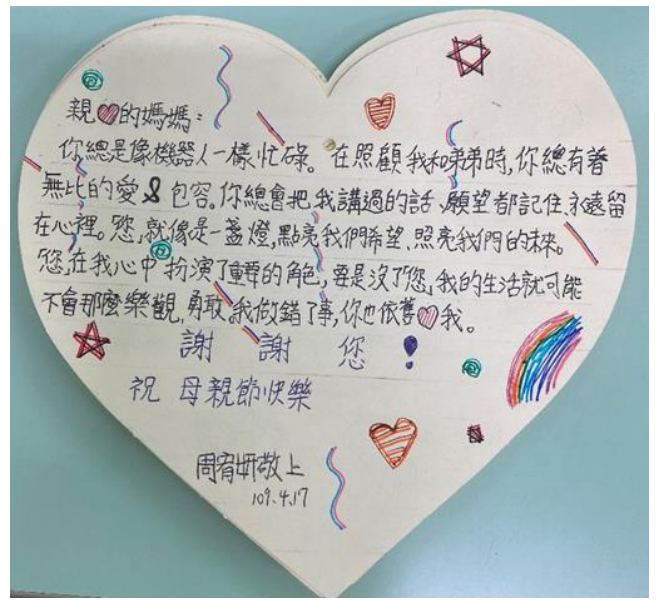 親♥的媽媽：
你總是像機器人一樣忙碌。在照顧我和弟弟時,你總有著
無比的愛&包容,你總會把我講過的話、願望都記住,永遠留
在心裡。您,就像是一盞燈,點亮我們希望,照亮我們的未來。
您,在我心中扮演了重要的角色,要是沒了您,我的生活就可能
不會那麼樂觀,勇敢,我做錯了事,你也依舊♥我。
謝謝您!
祝 母親節快樂
周宥妍敬上
109.4.17